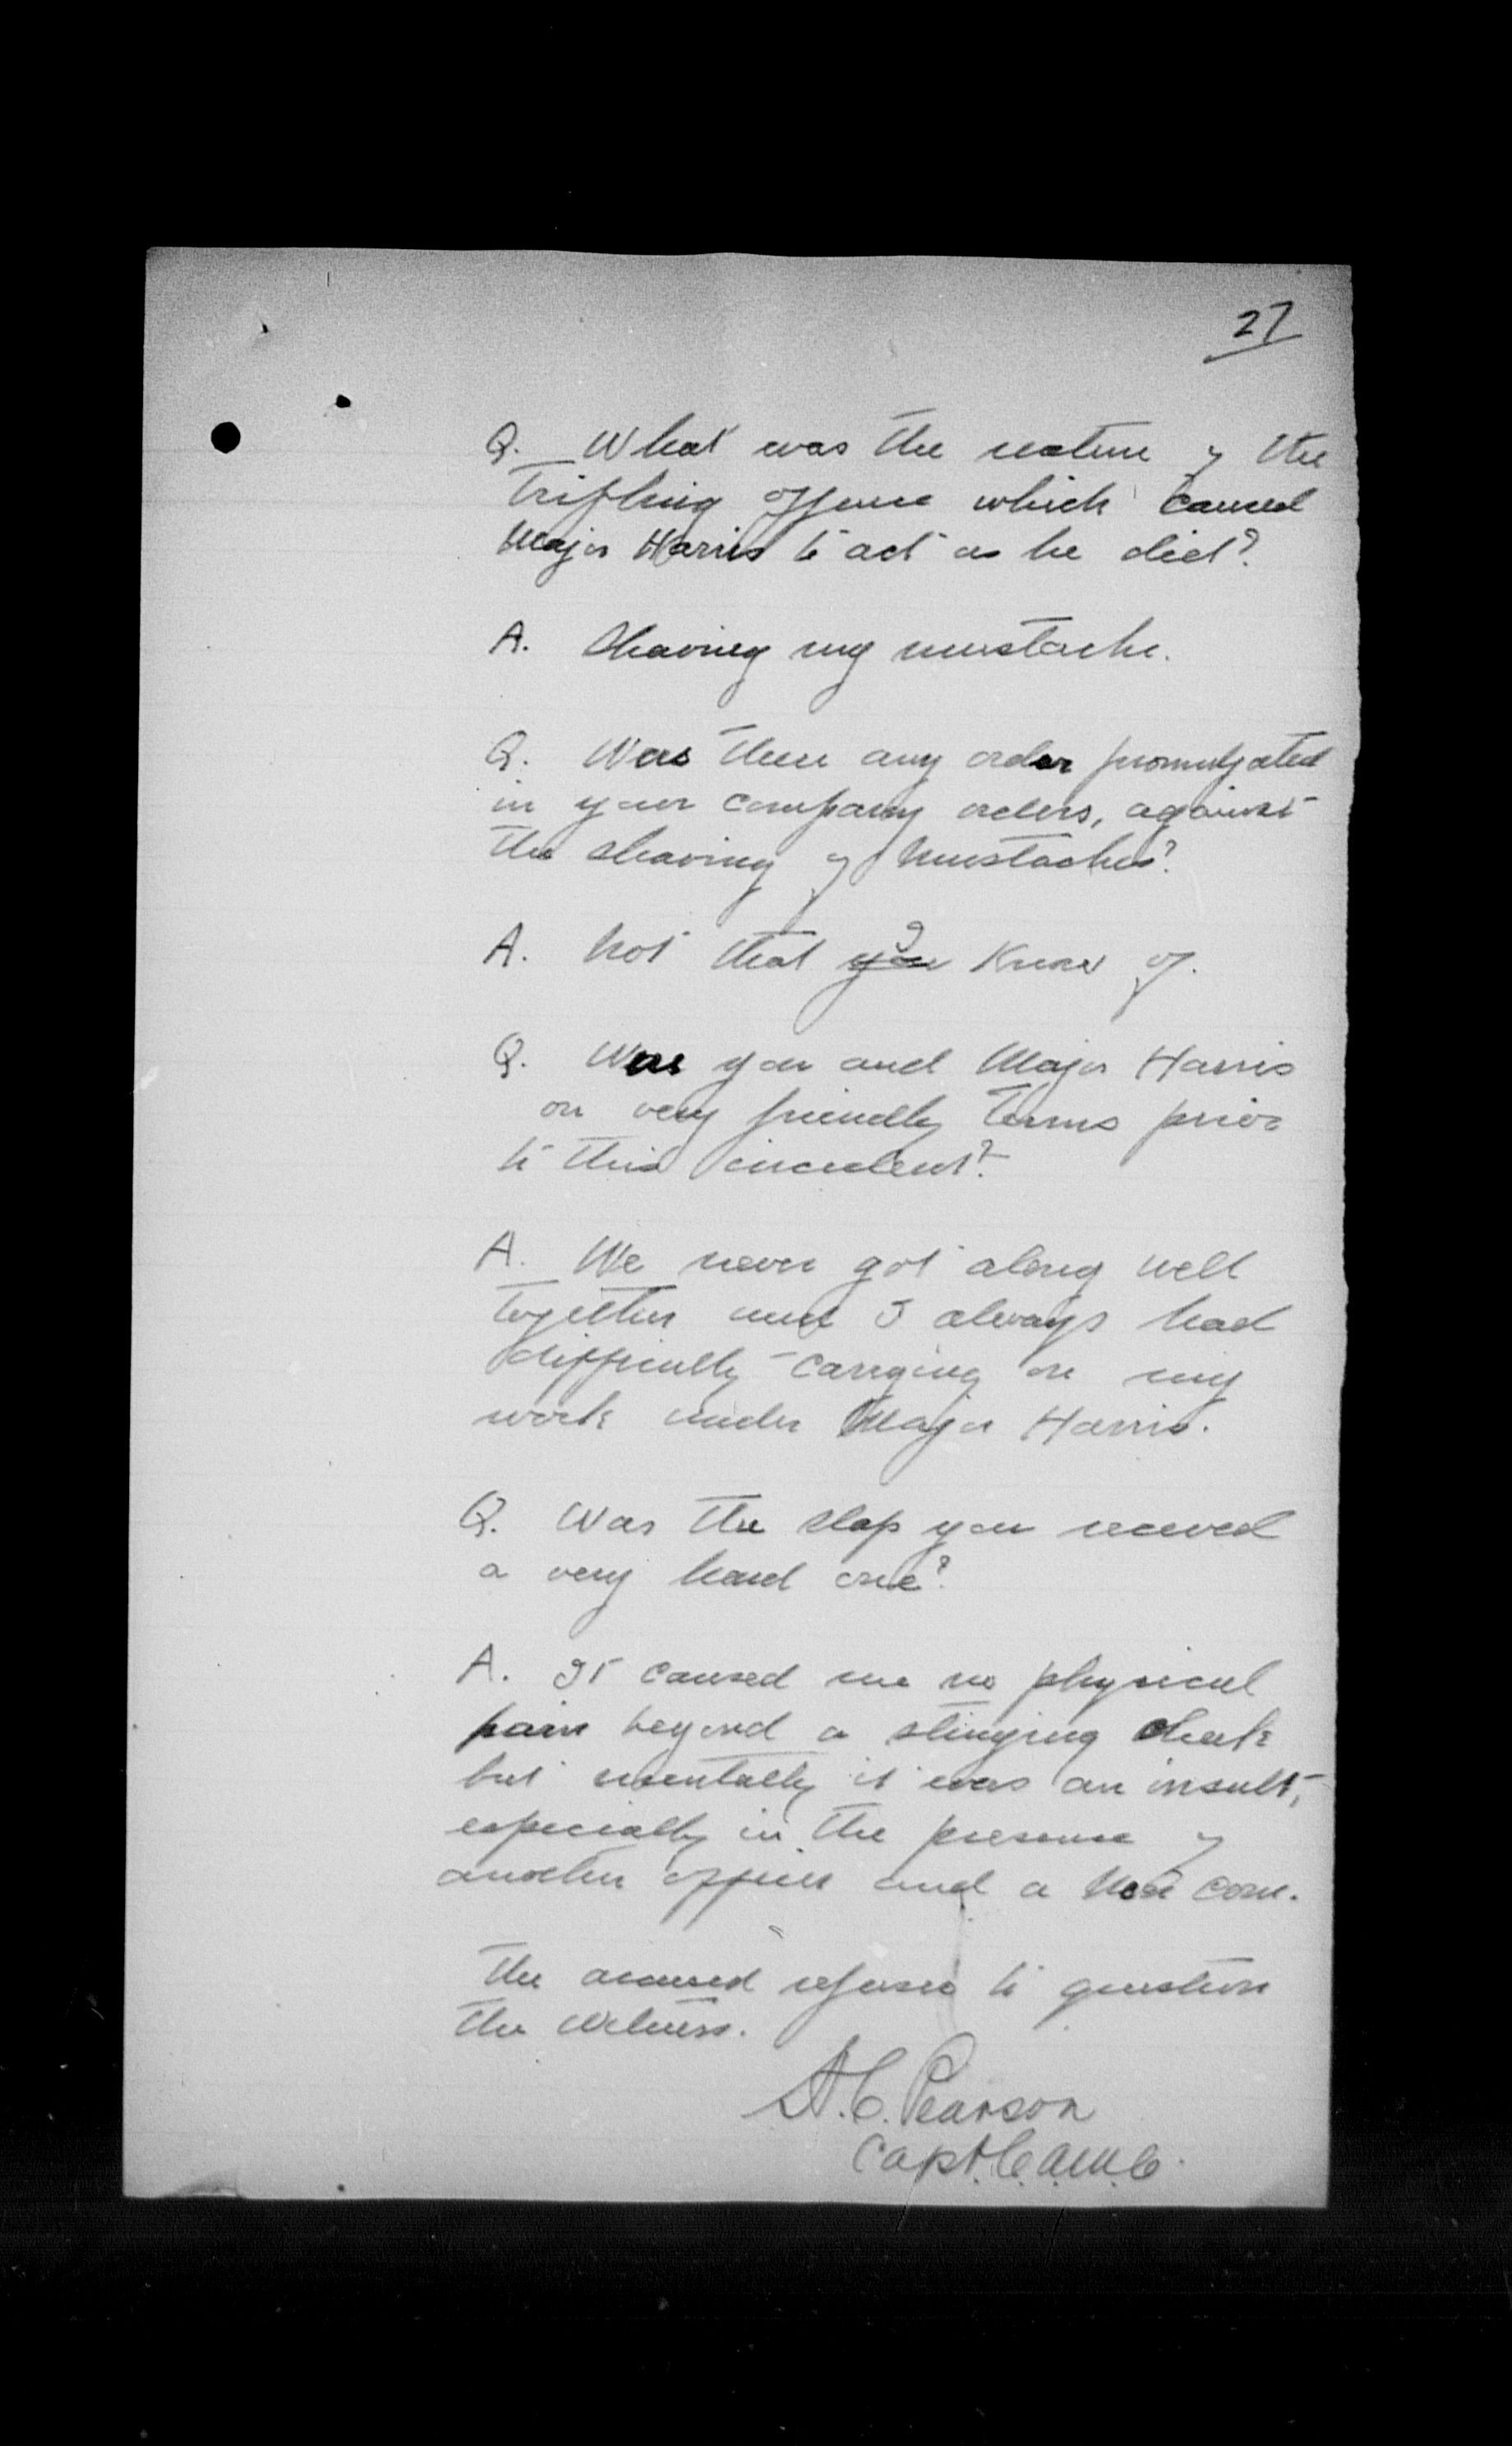 27
Q. What was the nature of the
trifling offense which caused
Major Harris to act as he did?
A. Shaving my mustache.
Q. Was there any order promulgated
in your company orders, against
the shaving of mustaches?
A. Not that you I know of.
Q. Was you and Major Harris
on very friendly terms prior
to this incident?
A. We never got along well
together and I always had
difficulty carrying on my
work under Major Harris.
Q. Was the slap you received
a very hard one?
A. It caused me no physical
pain beyond a stinging cheek
but mentally it was an insult,
especially in the presence of
another officer and a Non Com.
The accused refuses to question
the witness.
A. C. Pearson
Capt. C.A.M.C.